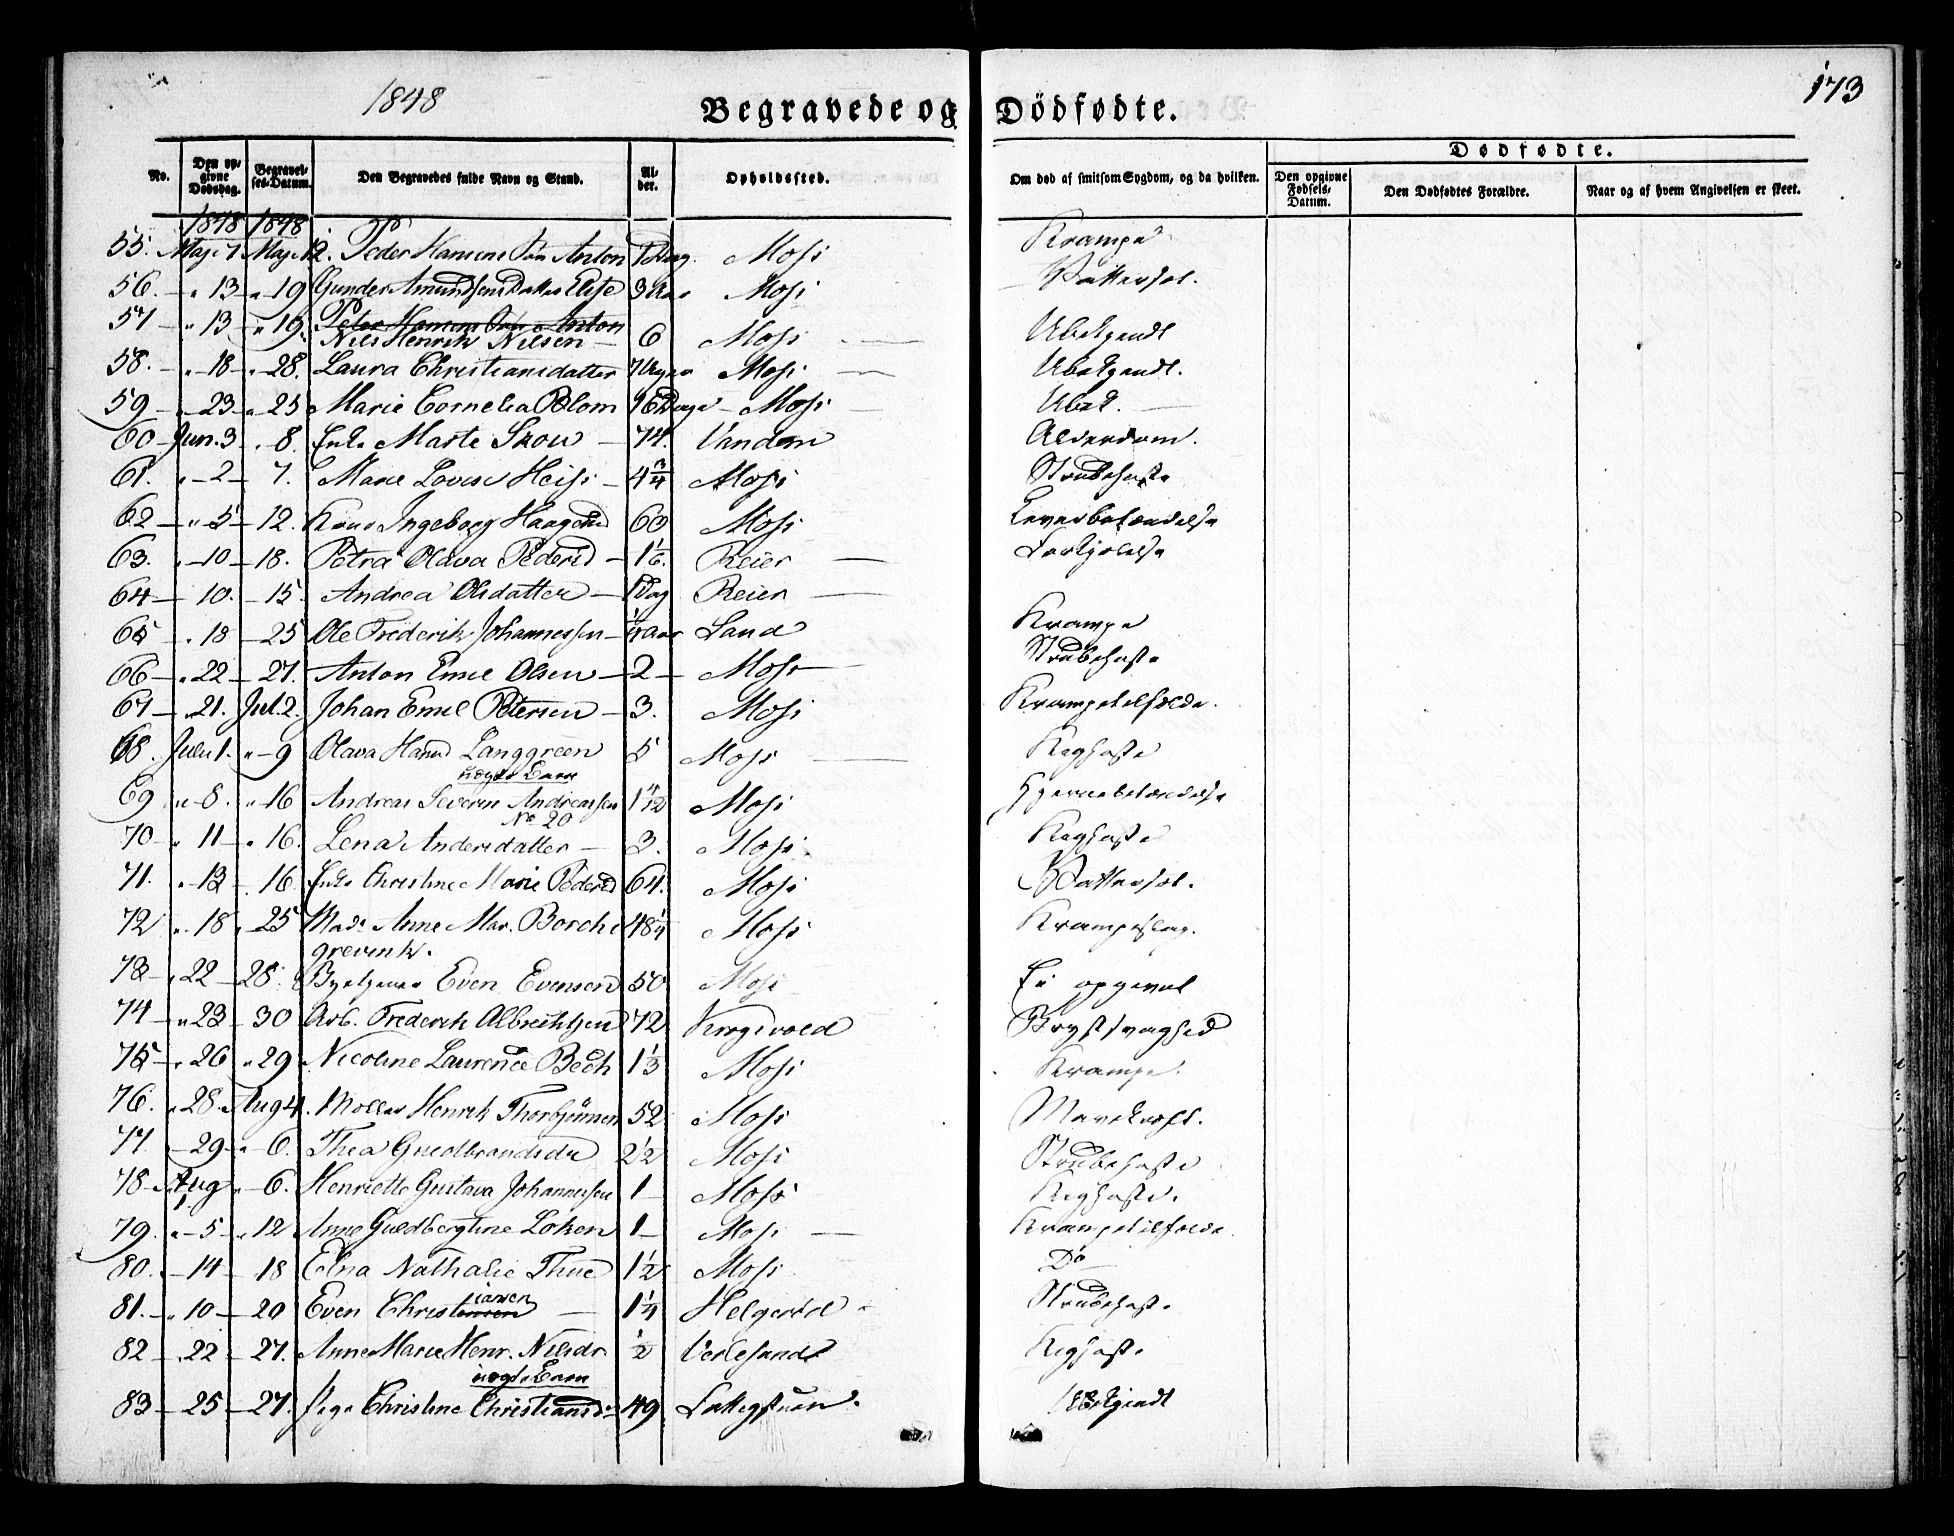 1848
173
Begravede og Dödfødte.
No. Den opgivne Dødsdag. Begravelses-Datum. Den Begravedes fulde Navn og Stand. Alder. Opholdssted. Om død af smitsom Sygdom, og da hvilken. Dødfødte. Den opgivne Fødsels-Datum. Den Dødfødtes Forældre. Naar og af hvem Angivelsen er skeet.
1848 1848
55. Maj 7 Maj 12. Peder Hansens Søn Anton Moss Krampe
56. " 13 " 19 Gunder Amundsens Datter Elise 3 Moss Vattersot.
57 " 13 " 19. Peder Hansens Søn Anton
Nils Henrik Nilsen 6 Moss Ubekjendt
58. " 18 " 28. Laura Christiansdatter 7 Uger Moss Ubekjendt.
59 " 23 " 25 Marie Cornelia Blom 16 Dage Moss Ubek.
60 Jun. 3 " 8. Enke Marte Skou 74. Vandem Alderdom.
61. " 2 7. Marie Lovise Heiss 4 3/4 Moss Strubehoste
62 " 5 12. Kone Ingeborg Haagensd 60 Moss Leverbetændelse
63. " 10 18. Petra Olava Pedersd 1 1/6. Reier Forkjølelse
64 10. 15. Andrea Olsdatter 1 Dag Reier
65 " 18 25 Ole Frederik Johannessen 1/4 Aar Sand Krampe
66 " 22 27. Anton Emil Olsen 2 Moss Strubehoste
67 " 21. Jul. 2. Johan Emil Petersen 3. Moss Krampetilfælde.
68. Juli 1. " 9 Olava Hansd Langgreen 5 Moss Kighoste
uægte Barn
69 " 8. " 16 Andreas Severin Andreassen 1 4/12 Moss Hjernebetændelse
No 20
70 " 11 " 16. Lena Andersdatter 3. Moss Kighoste
71. " 13 16. Enke Christine Marie Pedersd 64. Moss Vattersot.
72 " 18 25 Mad. Anne Mar. Borch 48 1/4 Moss Krampeslag.
grevink.
73 " 22 28. Even Evensen 50 Moss Ei opgivet
74 " 23 30 Arb. Frederik Albrechtsen 72 Krogsvold Brystsvaghed
75 " 26 " 29 Nicoline Laurence Bech 1 1/3 Moss Krampe.
76. " 28. Aug 4. Møller Henrik Thorbjørnsen 52 Moss Mavekræft.
77. 29 " 6. Thea Guldbrandsdr 2 1/2 Moss Strubehoste
78 Aug 1 " 6. Henriette Gustava Johannessen 1 Moss Kighoste.
79. " 5 " 12 Anne Guldbergtine Løken 1 Moss Krampetilfælde.
80. 14 18 Elna Nathalie Thue 1 1/2 Moss Do
81. " 10 20 Even Christensen iansen 1 1/4 Helgerød Strubehoste.
82 " 22 27. Anne Marie Henr. Nilsdr 1/2 Verlesand Kighoste
uægte Barn
83 25 27. Pige Christine Christiansdr 49 Ubekjendt